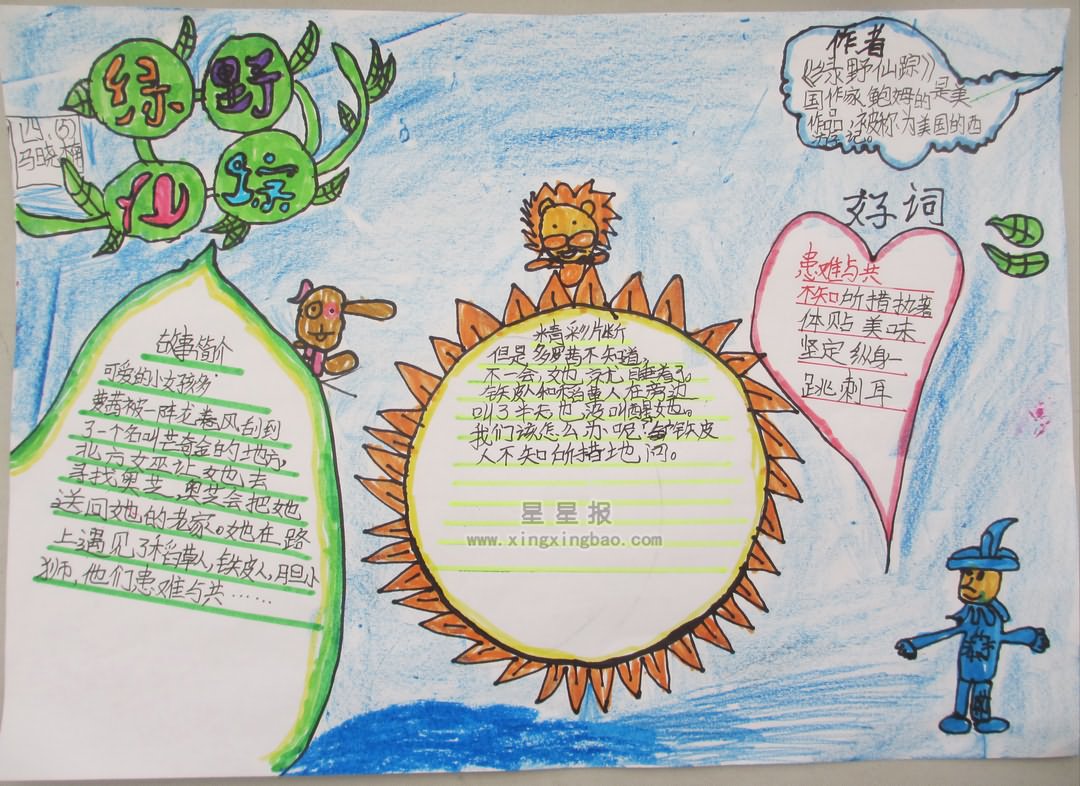 绿野
仙踪
四(5)
马晓楠
作者
《绿野仙踪》
是美
国作家鲍姆的
作品,被称为美国的西
游记。
好词
患难与共
不知所措执著
体贴 美味
坚定 纵身一
跳 刺耳
故事简介
可爱的小女孩多
萝茜被一阵龙卷风刮到
了一个名叫芒奇金的地方,
北方女巫让她去
寻找奥芝,奥芝会把她
送回她的老家。她在路
上遇见了稻草人,铁皮人,胆小
狮,他们患难与共……
精彩片断
但是多罗茜不知道,
不一会,她就睡着了。
铁皮人和稻草人在旁边
叫了半天也没叫醒她。
我们该怎么办呢?"铁皮
人不知所措地问。
星星报
www.xingxingbao.com